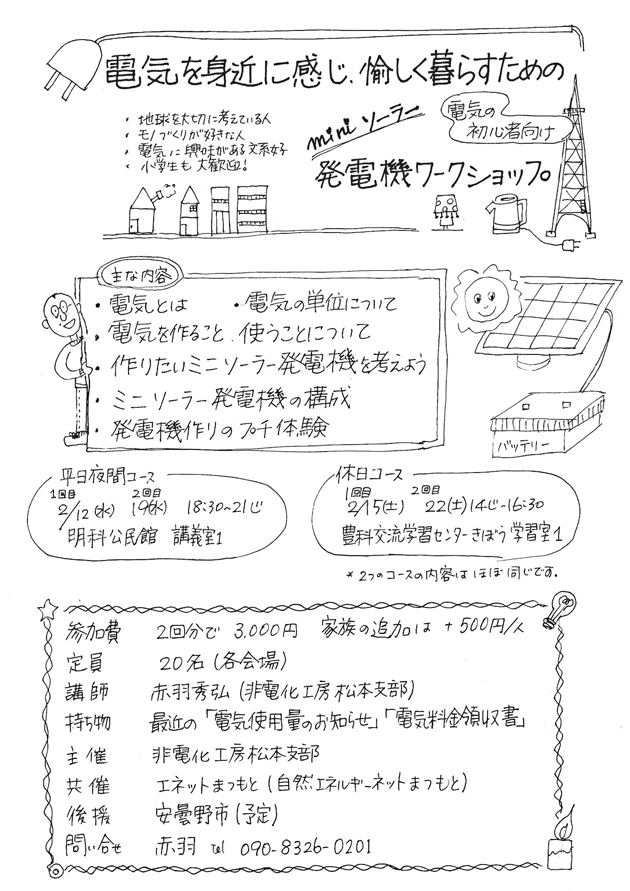 電気を身近に感じ、愉しく暮らすための
・地球を大切に考えている人
・モノづくりが好きな人
・電気に興味がある文系好
・小学生も大歓迎!
miniソーラー
電気の
初心者向け
発電機ワークショップ。
主な内容
・電気とは ・電気の単位について
・電気を作ること、使うことについて
・作りたいミニソーラー発電機を考えよう
・ミニソーラー発電機の構成
・発電機作りのプチ体験
バッテリー
平日夜間コース
1回目 2回目
2/12(水) 19(水) 18:30~21じ
明科公民館 講義室1
休日コース
1回目 2回目
2/15(土) 22(土)14じ~16:30
豊科交流学習センターきぼう学習室1
*2つのコースの内容はほぼ同じです。
参加費 2回分で 3,000円 家族の追加は+500円/人
定員 20名(各会場)
講師 赤羽秀弘(非電化工房松本支部)
持ち物 最近の「電気使用量のお知らせ」「電気料金領収書」
主催 非電化工房松本支部
共催 エネットまつもと(自然エネルギーネットまつもと)
後援 安曇野市(予定)
問い合せ 赤羽 tel 090-8326-0201